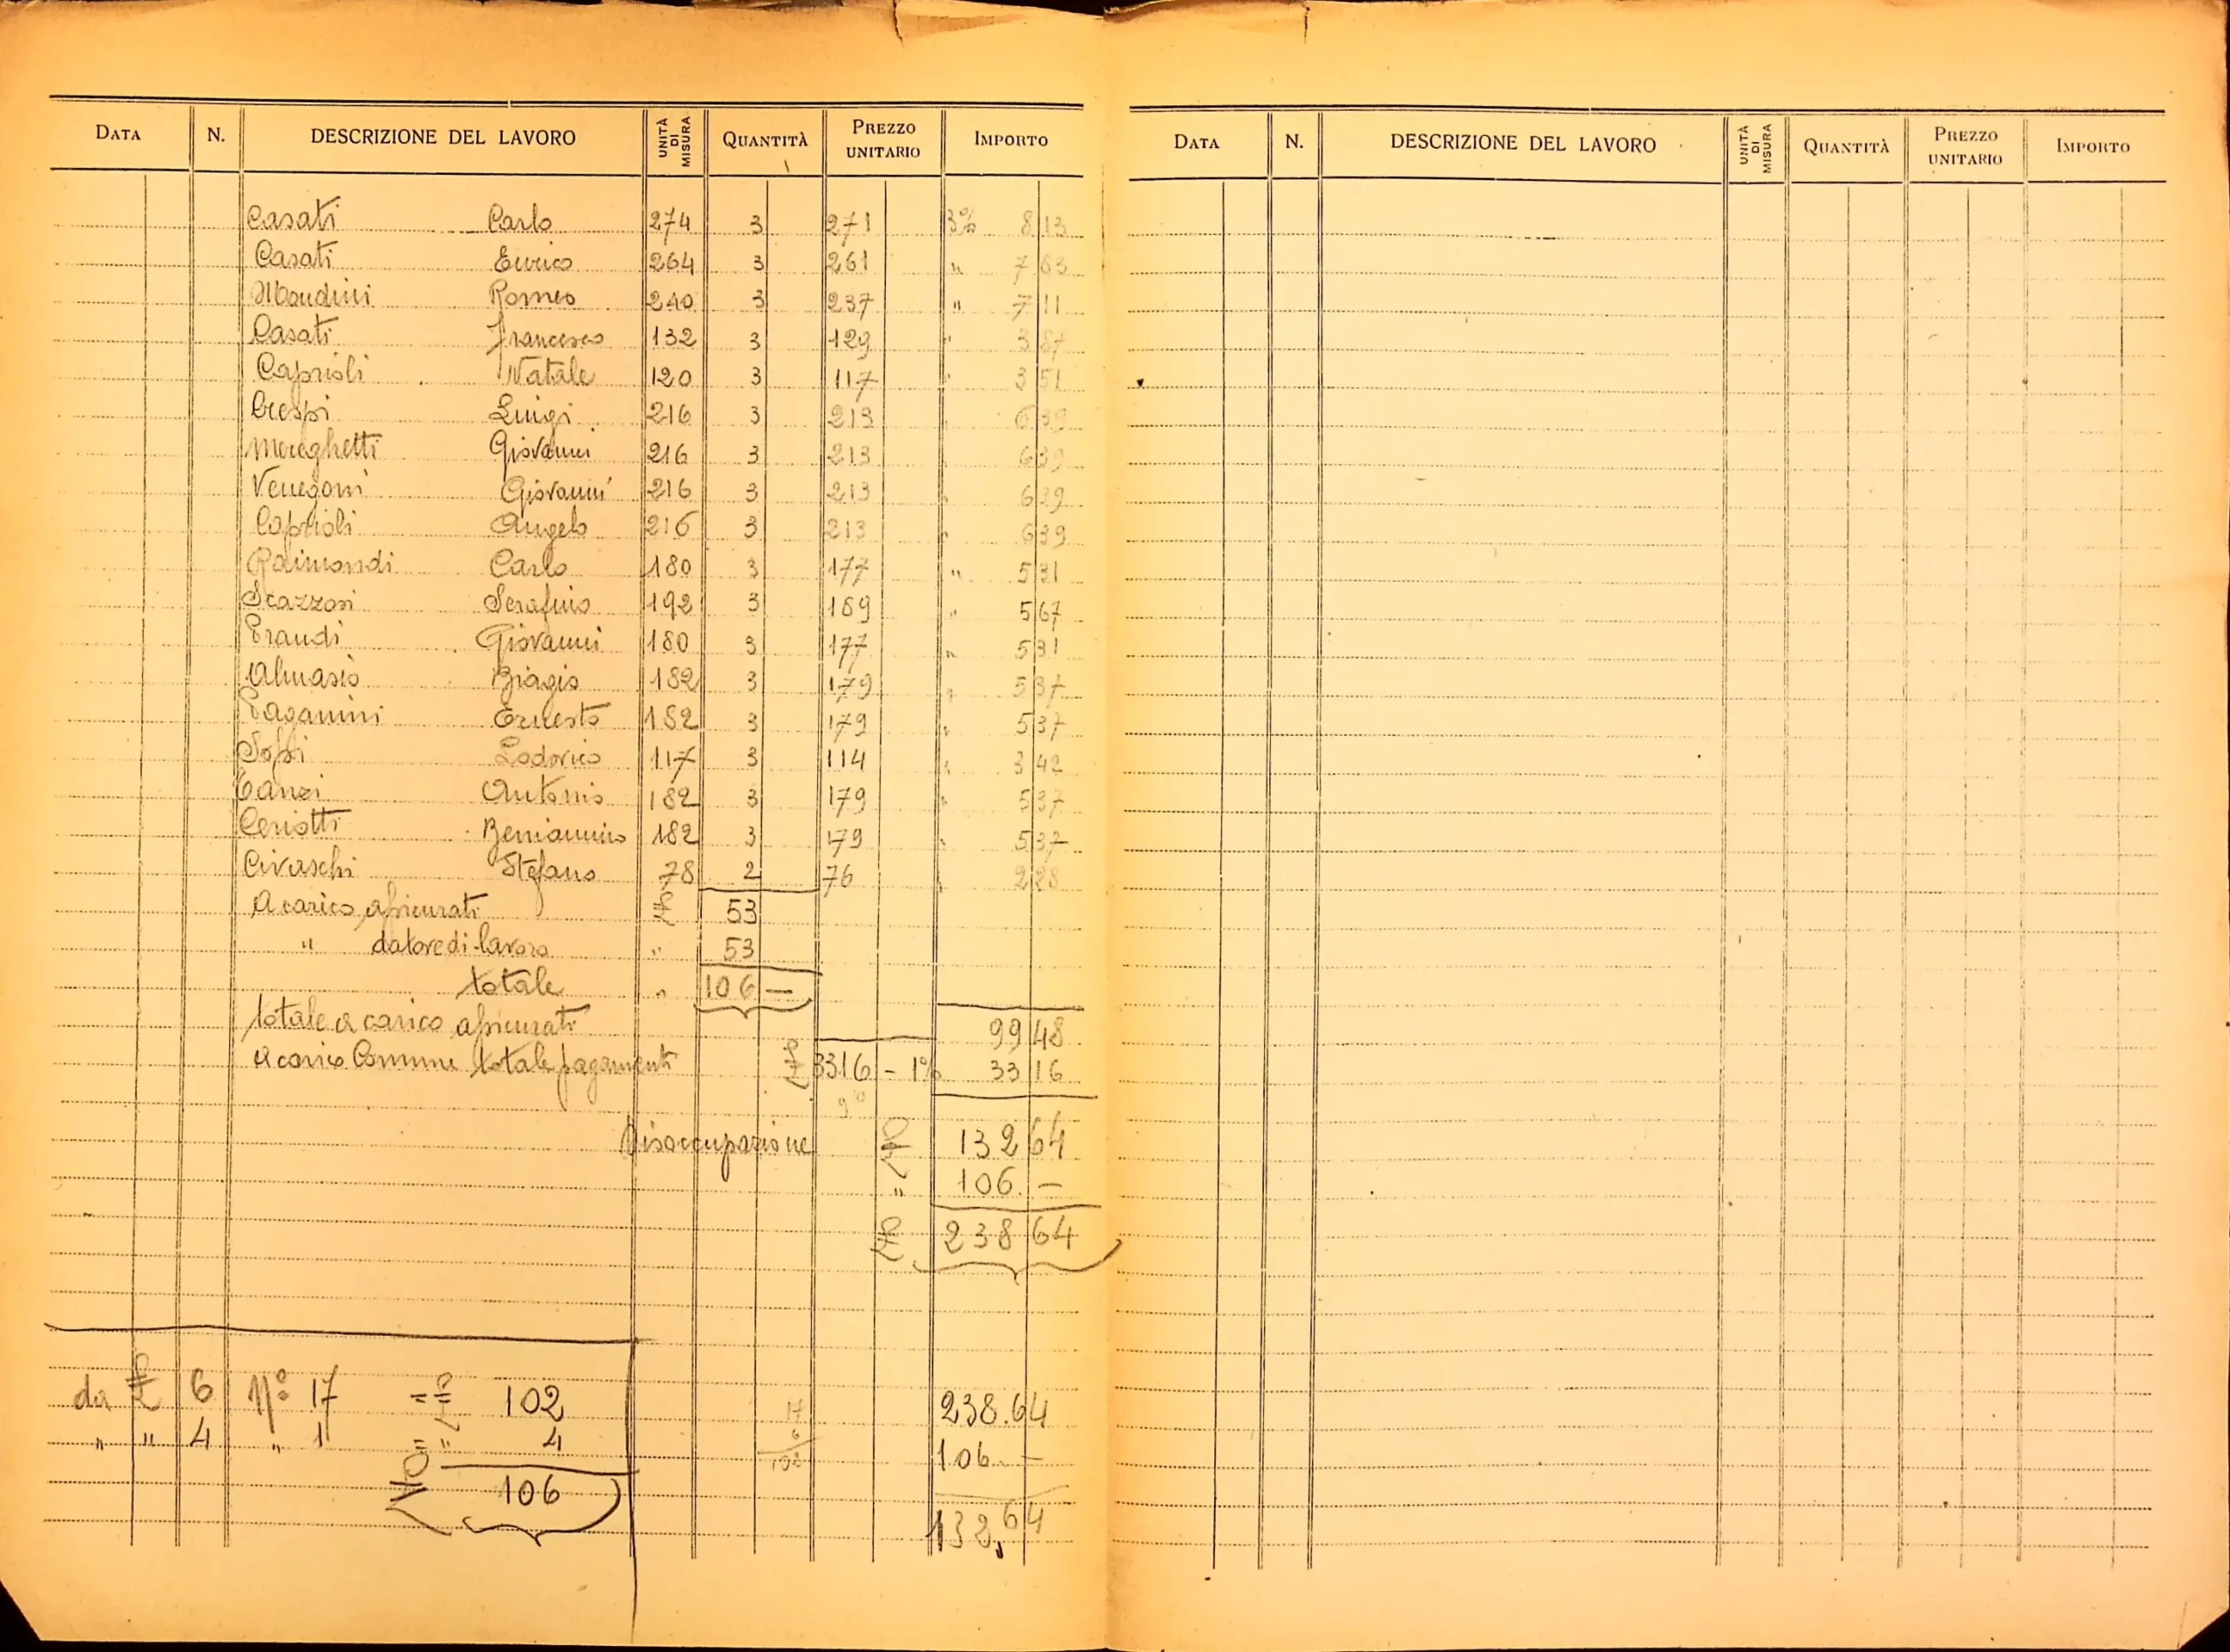 DATA N. DESCRIZIONE DEL LAVORO UNITÀ DI MISURA QUANTITÀ PREZZO UNITARIO IMPORTO
Casati Carlo 274 3 271 3% 8 13
Casati Enrico 264 3 261 " 7 83
Mandrini Romeo 240 3 237 " 7 11
Casati Francesco 132 3 129 " 3 87
Caprioli Natale 120 3 117 " 3 51
Crespi Luigi 216 3 213 " 6 39
Mereghetti Giovanni 216 3 213 " 6 39
Venegoni Giovanni 216 3 213 " 6 39
Caprioli Angelo 216 3 213 " 6 39
Raimondi Carlo 180 3 177 " 5 31
Scazzosi Serafino 192 3 189 " 5 67
Prandi Giovanni 180 3 177 " 5 31
Almasio Biagio 182 3 179 " 5 37
Paganini Ernesto 182 3 179 " 5 37
Lodovico 117 3 114 " 3 42
Tanzi Antonio 182 3 179 " 5 37
Ceriotti Beniamino 182 3 179 " 5 37
Stefano 78 2 76 " 2 28
A carico assicurati £ 53
" datore di lavoro " 53
totale " 106 —
totale a carico assicurati 99 48
A carico Comune totale pagamenti £ 3316 - 1% 33 16
Disoccupazione £ 132 64
" 106 —
£ 238 64
da £ 6 N° 17 = £ 102
" " 4 " 1 = " 4
£ 106
17
6
108
238.64
106. —
132,64
DATA N. DESCRIZIONE DEL LAVORO UNITÀ DI MISURA QUANTITÀ PREZZO UNITARIO IMPORTO